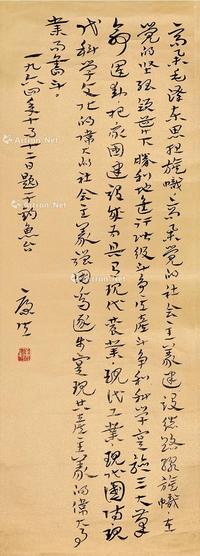 高举毛泽东思想旗帜高举党的社会主义建设总路线旗帜在
党的坚强领导下胜利地进行阶级斗争生产斗争和科学实验三大革
命运动把我国建设成为具有现代农业现代工业现代国防现
代科学文化的伟大的社会主义强国高逐步实现共产主义的伟大事
业而奋斗
一九六四年十月二日题于钓鱼台
康生
Artron.Net
Artron.Net